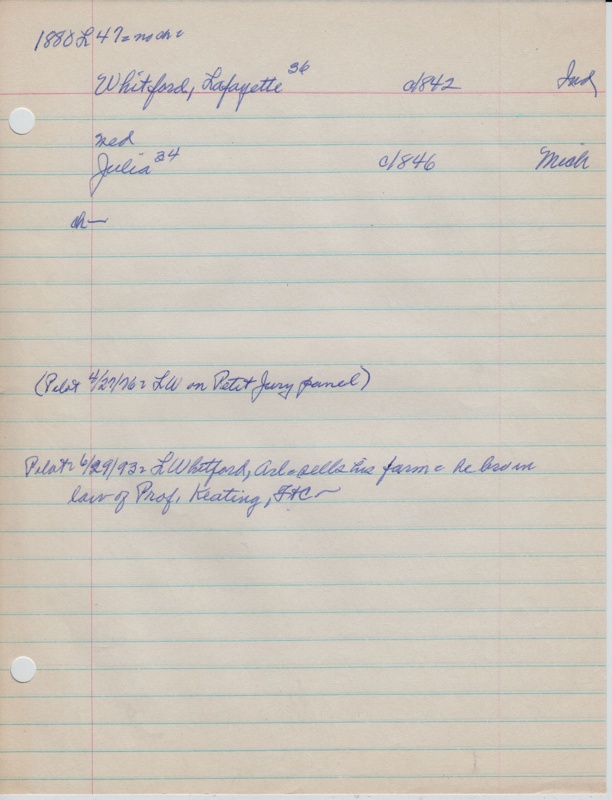 1880 L 47 = no ch =
Whitford, Lafayette 36 c1842 Ind
med
Julia 34 c1846 Mich
ch—
(Pilot 4/27/76 = LW on Petit Jury panel)
Pilot 6/29/93 = L Whitford, Arl = sells his farm = he bro in
law of Prof. Keating,